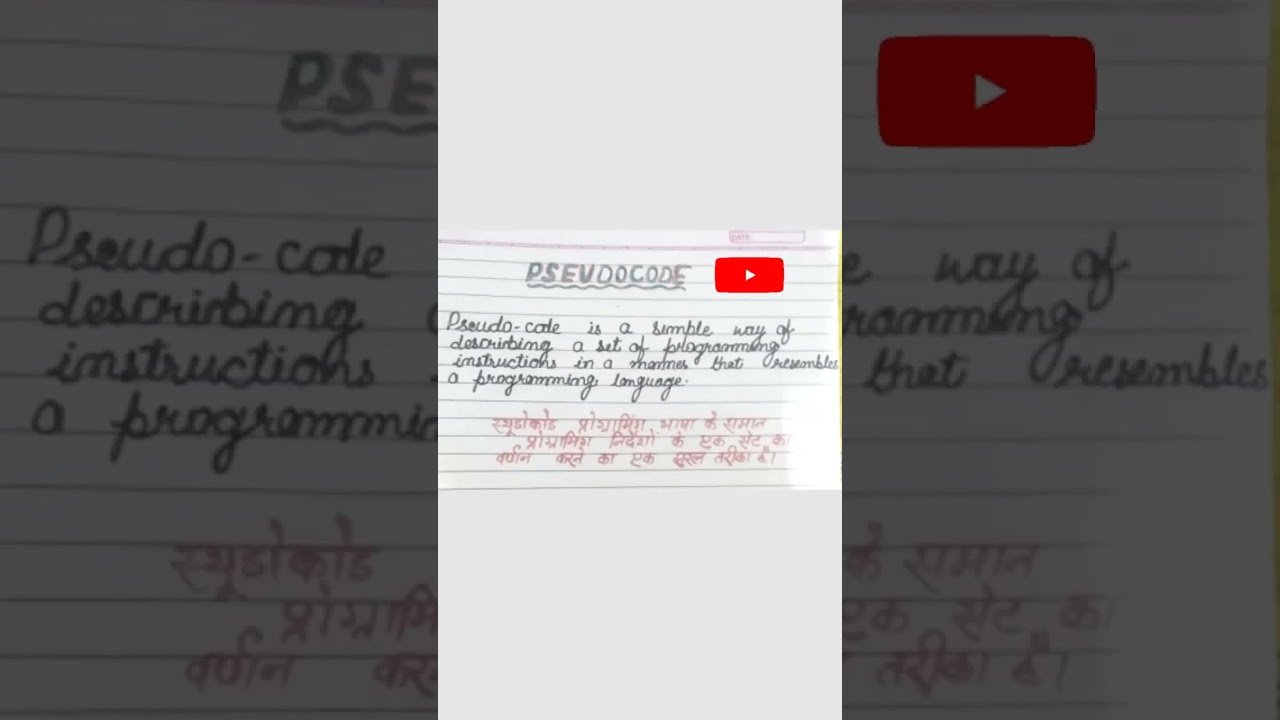 DATE
PSEUDOCODE
Pseudo-code is a simple way of
describing a set of programming
instructions in a manner that resembles
a programming language.
स्यूडोकोड प्रोग्रामिंग भाषा के समान
प्रोग्रामिंग निर्देशों के एक सेट का
वर्णन करने का एक सरल तरीका है।